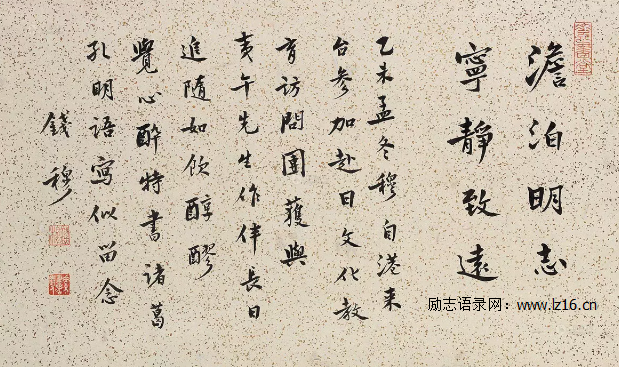 澹泊明志
寧靜致遠
乙未孟冬穆自港来
台参加赴日文化教
育访問團獲與
夷午先生作伴長日
追随如飲醇醪
覺心醉特書諸葛
孔明語寫似留念
錢穆
励志语录网：www.lz16.cn